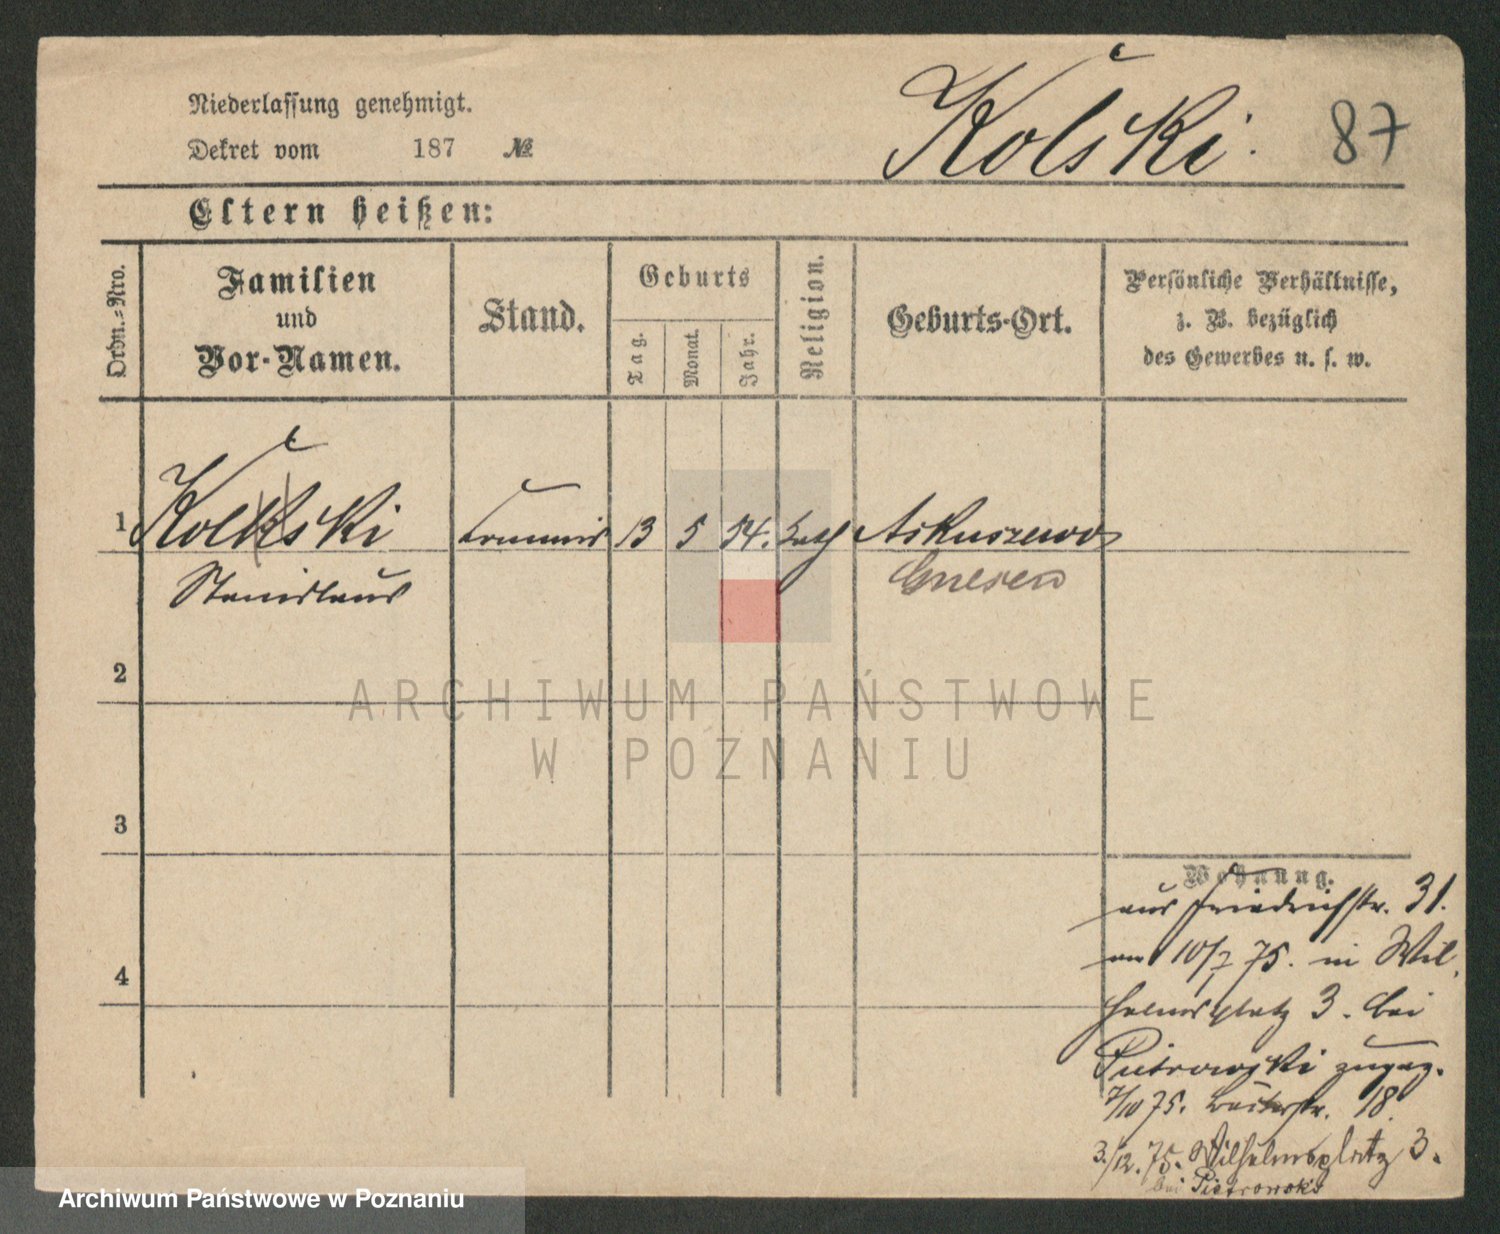 Niederlassung genehmigt.
Dekret vom 187 №
Kolski. 87
Eltern heißen:
Ordn.=Nro.
Familien
und
Vor-Namen.
Stand.
Geburts
Tag.
Monat.
Jahr.
Religion.
Geburts-Ort.
Persönliche Verhältnisse,
z. B. bezüglich
des Gewerbes u. s. w.
1 Kolski Commis 13 5 54. kath
Stanislaus Gnesen
2
3
4
Wohnung.
aus Friedrichstr. 31.
am 10/7 75. in Wil
helmsplatz 3. bei
Pietrowski zugez.
7/10 75. 18.
3./12. 75. Wilhelmsplatz 3.
bei Pietrowski
ARCHIWUM PAŃSTWOWE
W POZNANIU
Archiwum Państwowe w Poznaniu